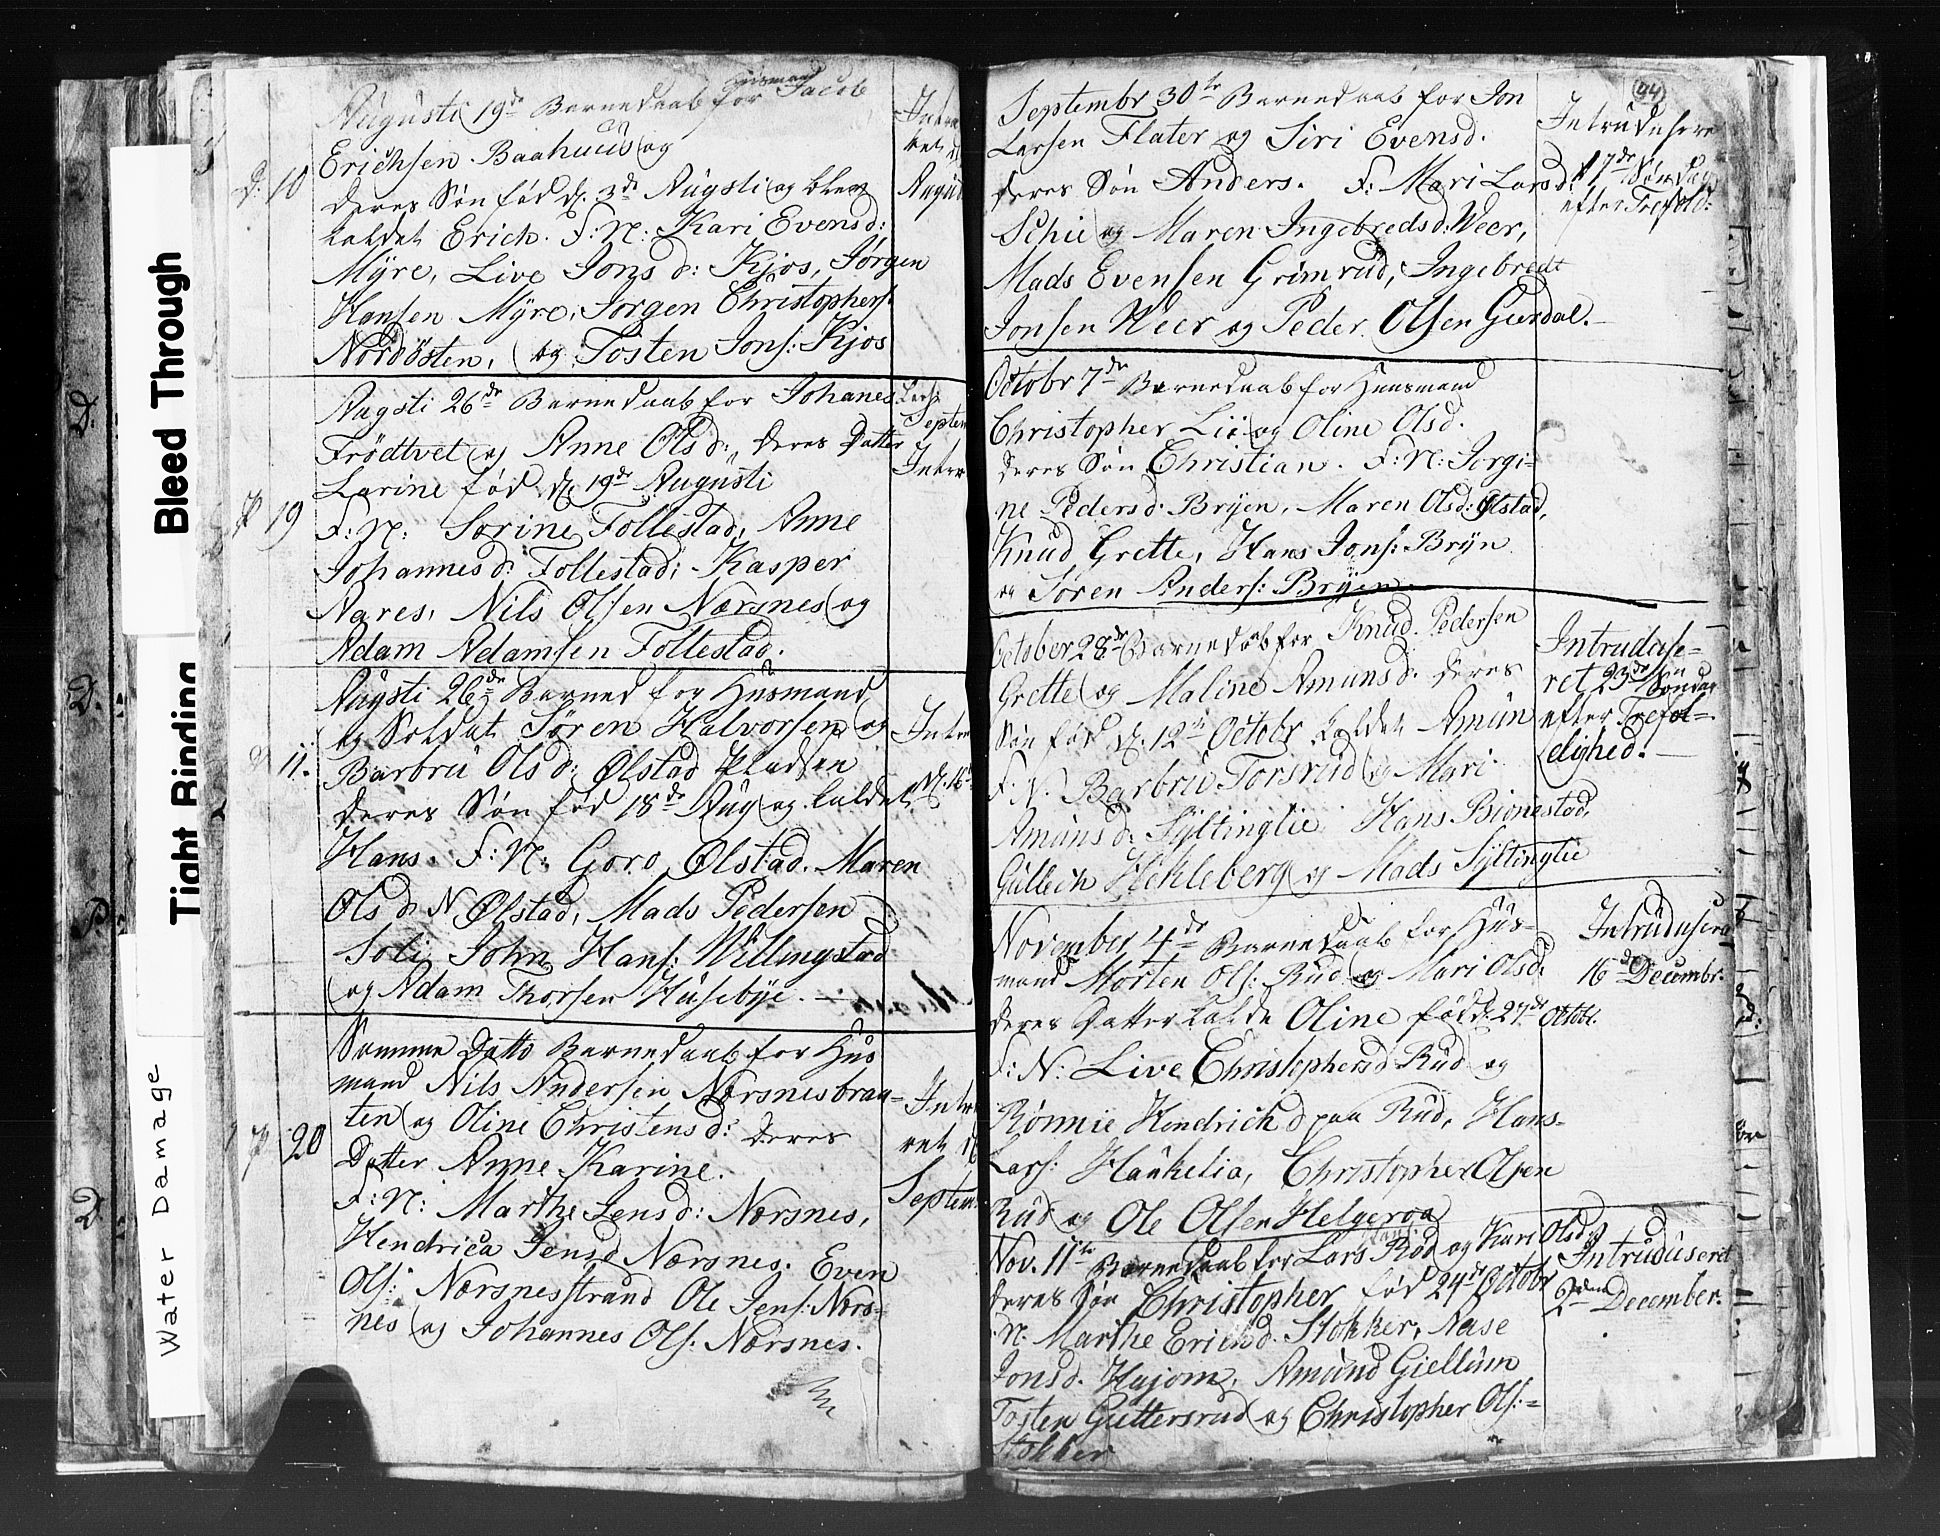 Bleed Through
Tight Binding
Water Damage
D.
D.
P.
D.
Huusmand
Augusti 19de Barnedaab for Jacob
Erichsen Baahuus og
D. 10
deres Søn fød d. 3de Augsti og blev
kaldet Erich. F: N: Kari Evensd:
Myre, Live Jonsd: Kjos, Jørgen
Hansen Myre, Jørgen Christophers:
Nordbÿsten, og Tosten Jons: Kjos
Augsti 26de Barnedaab for Johanes Lars:
Frödtvet og Anne Olsd: deres Datter
Larine fød d. 19de Augusti
P 19
F: N: Sorine Follestad, Anne
Johannesd: Follestad; Kasper
Aares, Nils Olsen Nærsnes og
Adam Adamsen Follestad.
Septem
Intro
Augsti 26de Barned for Husmand
og Soldat Søren Halvorsen og
D 11.
Barbru Olsd: Ølstad Pladsen
deres Søn fød 18de Aug og kaldet
Hans. F: N: Goro Ølstad. Maren
Olsd N Ølstad, Mads Pedersen
Soli John Hans: Willingstad
og Adam Thorsen Husebye.
Samme Dato Barnedaab for Hus
mand Nils Andersen Nærsnesbraa-
ten og Oline Christensd: deres
P 20
Datter Anne Karine.
F: N: Marthe Jensd: Nærsnes,
Hendrica Jensd Nærsnes. Even
Ols: Nærsnesstrand Ole Jens: Nærs-
nes og Johannes Ols: Nærsnes.
Septem
94
Septembr 30te Barnedaab for Jon
Larsen Flater og Siri Evensd.
deres Søn Anders. F: Mari Larsd:
Schie og Maren Ingebredsd: Weer,
Mads Evensen Grimsrud, Ingebredt
Jonsen Weer og Peder Olsen Gurdal.
Introdusere
17de Søndag
efter Trefold:
Octobr 7de Barnedaab for Huusmand
Christopher Lie og Oline Olsd.
deres Søn Christian. F: N: Jorgi-
ne Pedersd. Bryen, Maren Olsd: Ølstad,
Knud Grette, Hans Jons: Bryn
og Søren Anders: Bryen
October 28de Barnedaab for Knud Pedersen
Grette og Maline Amunsd. deres
Søn fød d. 12te Octobr kaldet Amun
F. N. Barbru Torsrud og Mari
Amunsd: Syltinglie Hans Bionestad,
Gullech Hekleberg og Mads Syltinglie
Introduse-
ret 23de Søndag
efter Trefol-
dighed.
November 4de Barnedaab for Hus-
mand Morten Ols: Rud og Mari Olsd:
deres Datter kalde Oline fød d: 27de Octobr.
F: N: Live Christophersd Rud og
Rønnie Hendrichd paa Rud, Hans
Lars: Haukelia, Christopher Olsen
Rud og Ole Olsen Helgeroa
Introdusera
16de Decembr:
Nov. 11te Barnedaab for Lars Rød og Kari Olsd:
deres Søn Christopher fød 24de Octobr
N. Marthe Ericsd. Stokker, Aase
Jonsd. Hajom, Amund Giellum
Tosten Guttersrud og Christopher Ols:
Stokker
Introduseret
2den December.